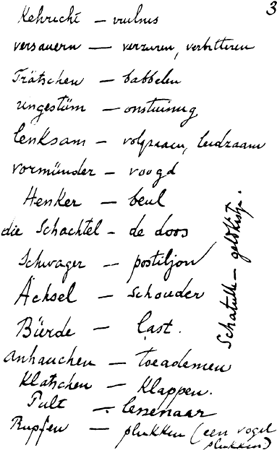 3
Kehricht — vuilnis
versauern — verzuren, verbitteren
Trätschen — babbelen
ungestüm — onstuimig
lenksam — volgzaam, leidzaam
vormünder — voogd
Henker — beul
die Schachtel — de doos
Schwager — postiljon
Achsel — schouder
Bürde — last.
anhauchen — toeademen
Klatschen — Klappen.
Pult — lessenaar
Rupfen — plukken (een vogel plukken)
Schatulle — geldkistje.